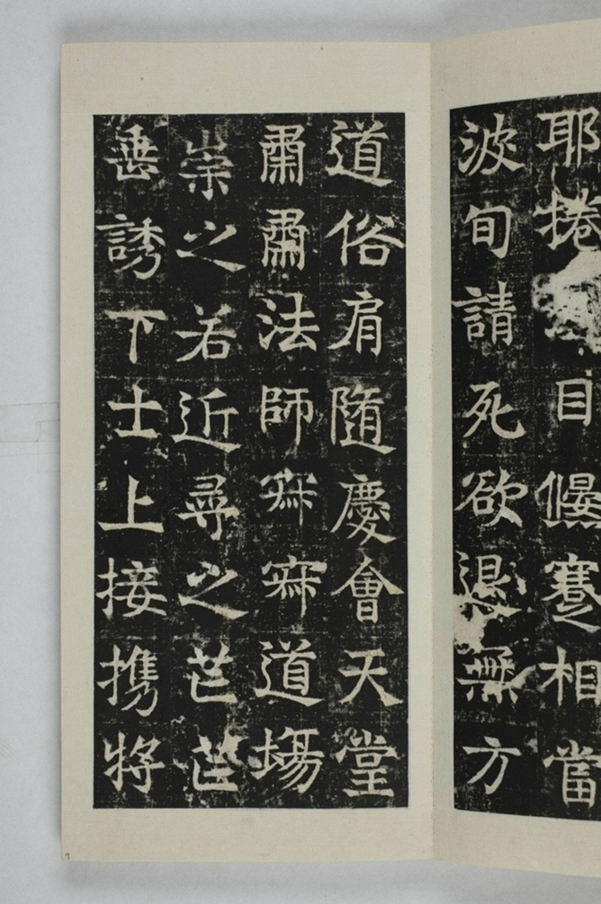 耶捲目偃蹇相當
波旬請死欲退無方
道俗肩随慶會天堂
肅肅法師寂寂道場
崇之若近尋之芒芒
善誘下士上接携將